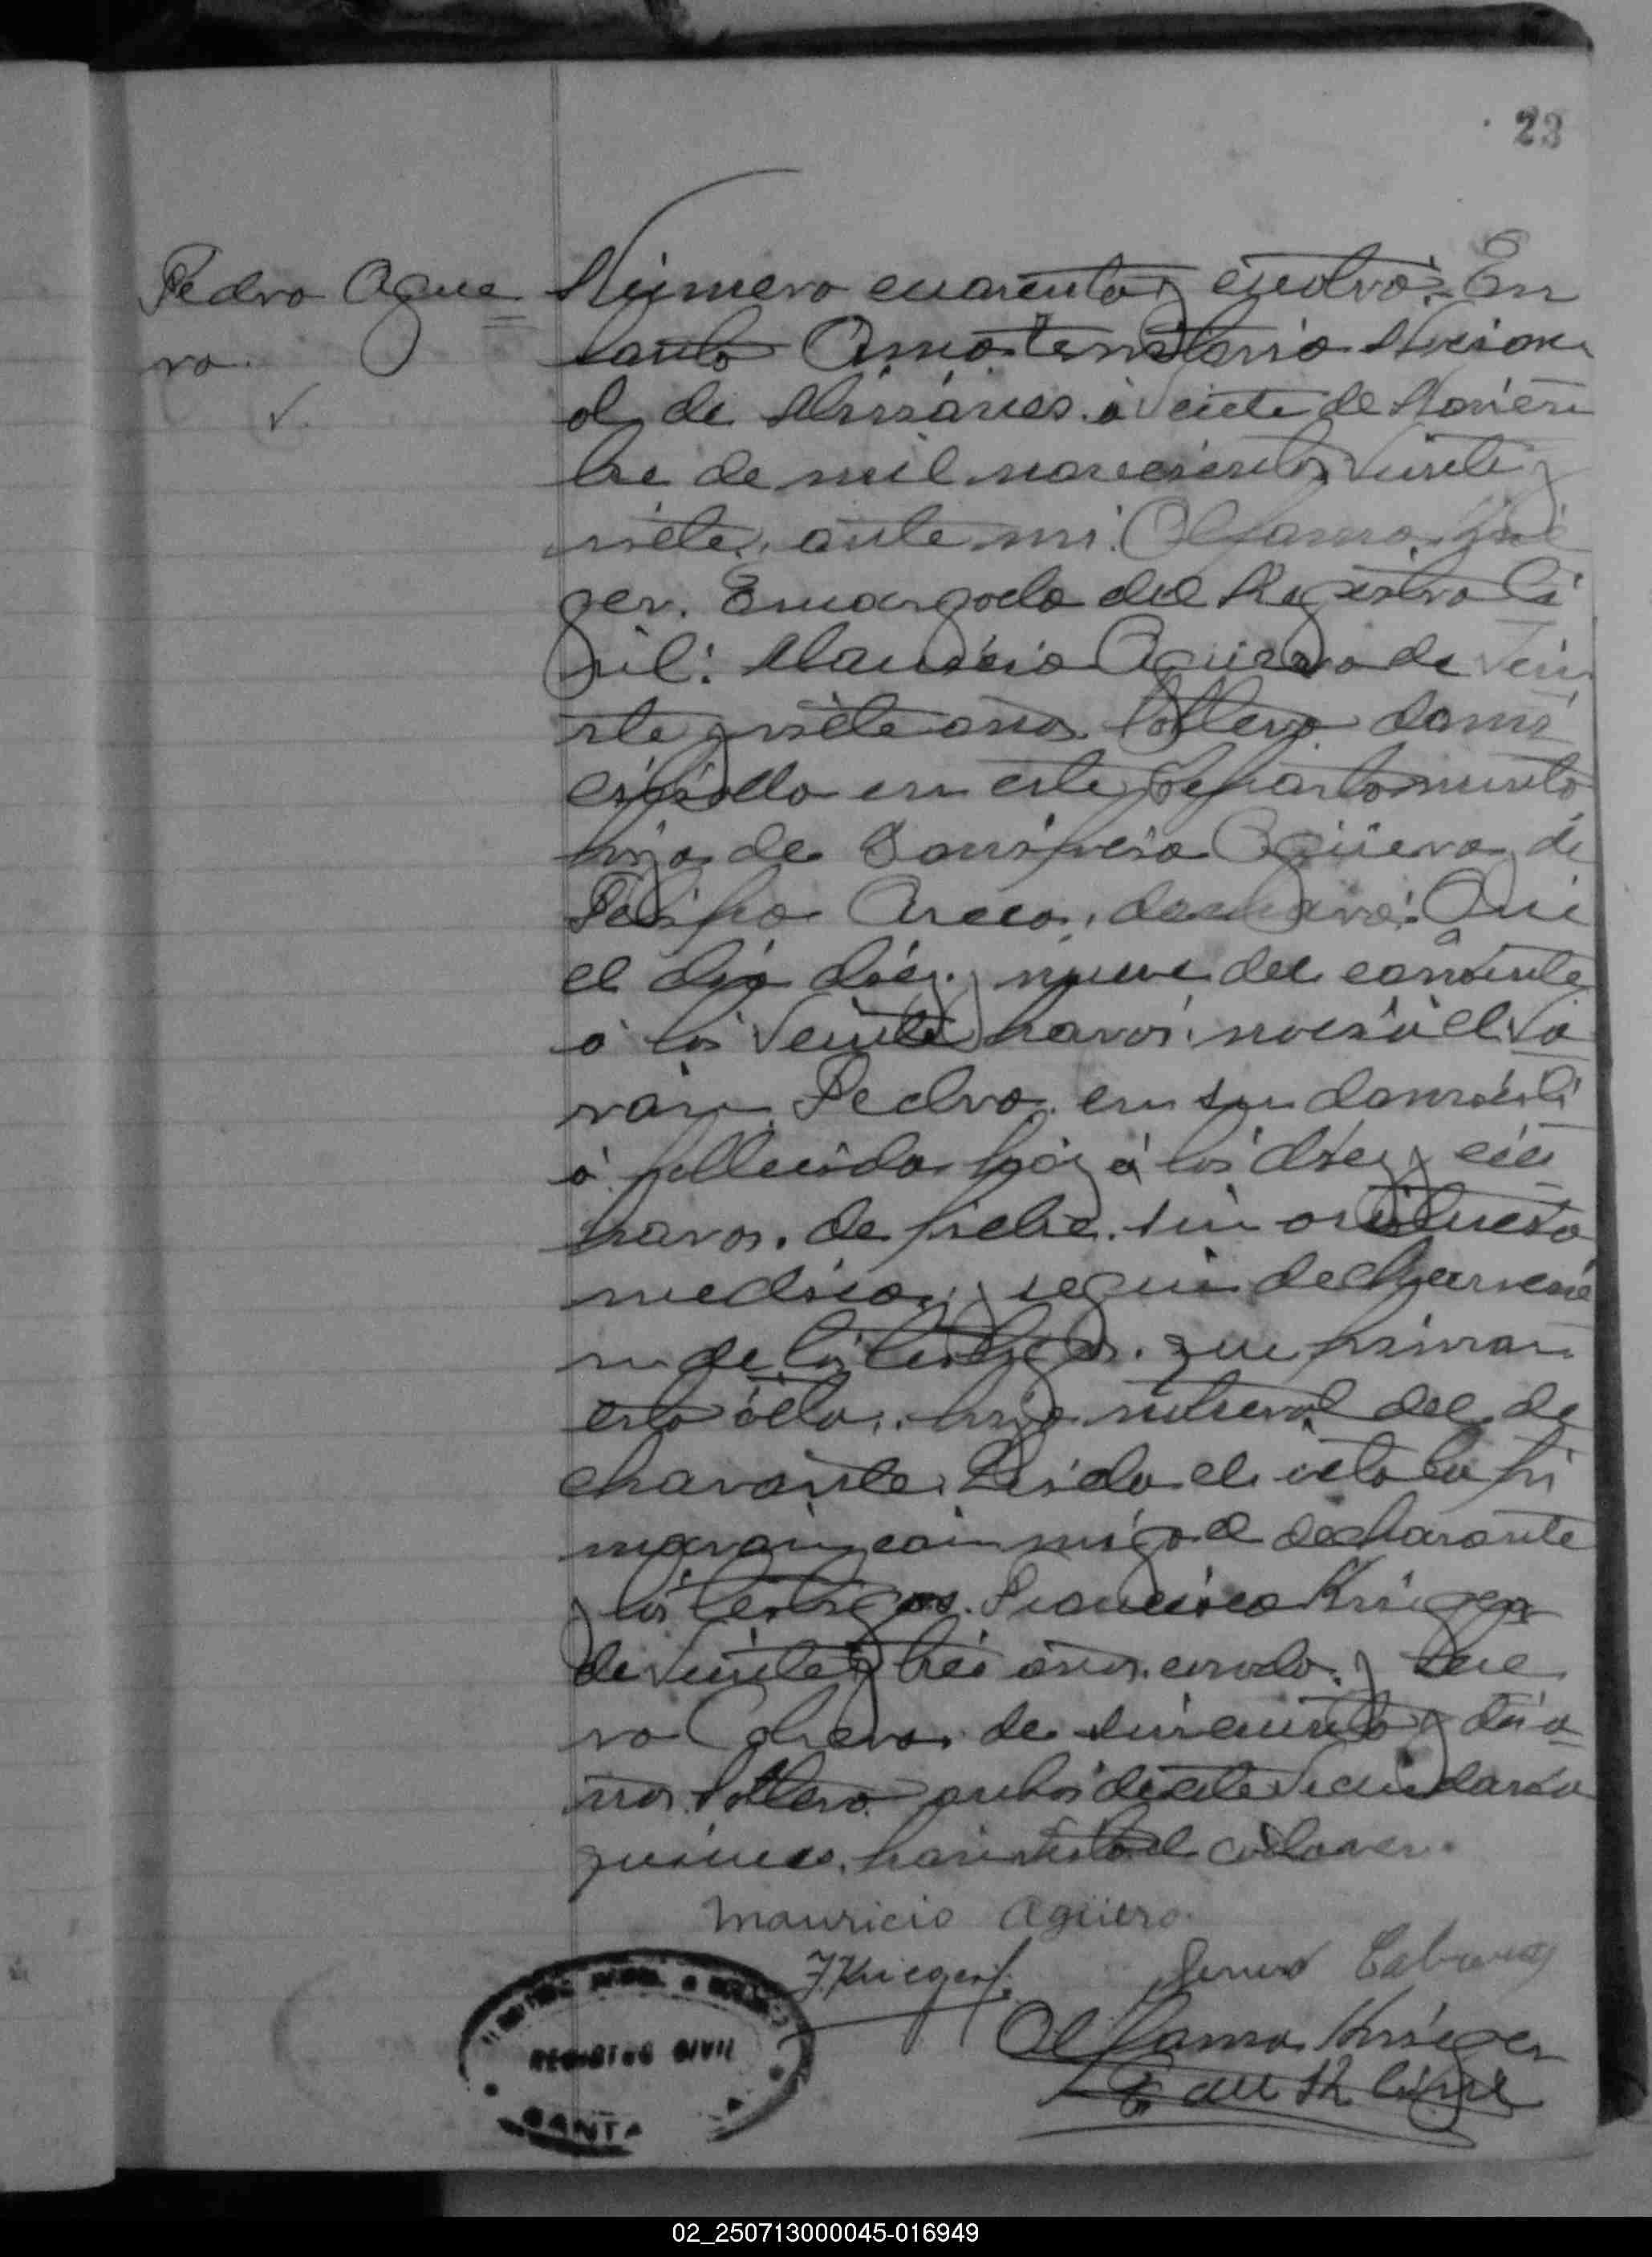 23
Pedro Agüe
ro.
Número cuarenta y cuatro: En
Santa Ana territorio Nacion
al de Misiones à veinte de Noviem
bre de mil novecientos veinte y
siete, ante mi. Olfama Krie
ger. Encargado del Registro Ci
vil: Mauricio Agüero de vein
te y siete años. soltero domi
ciliado en este Departamento
hijo de Bonifacia Agüero y de
Areco, declaró: Que
el dia diez y nueve del corriente
à las veinte horas nació el va
ron Pedro en su domicili
o fallecido hoy à las diez y
horas. de fiebre. sin asistencia
medica, y segun declaracio
n de los testigos. que firman
esta acta, hijo natural del de
clarante. Leida el acta la fir
maron conmigo el declarante
y los testigos. Francisco Krieger
de veinte y tres años. casado. y
ro Cabrera. de cincuenta y dos a
ños. soltero ambos de este vecindario
quienes han visto el cadaver.
Mauricio Agüero.
F. Krieger
Cabrera
Olfama Krieger
E del R Civil
REGISTRO CIVIL
SANTA
02_250713000045-016949